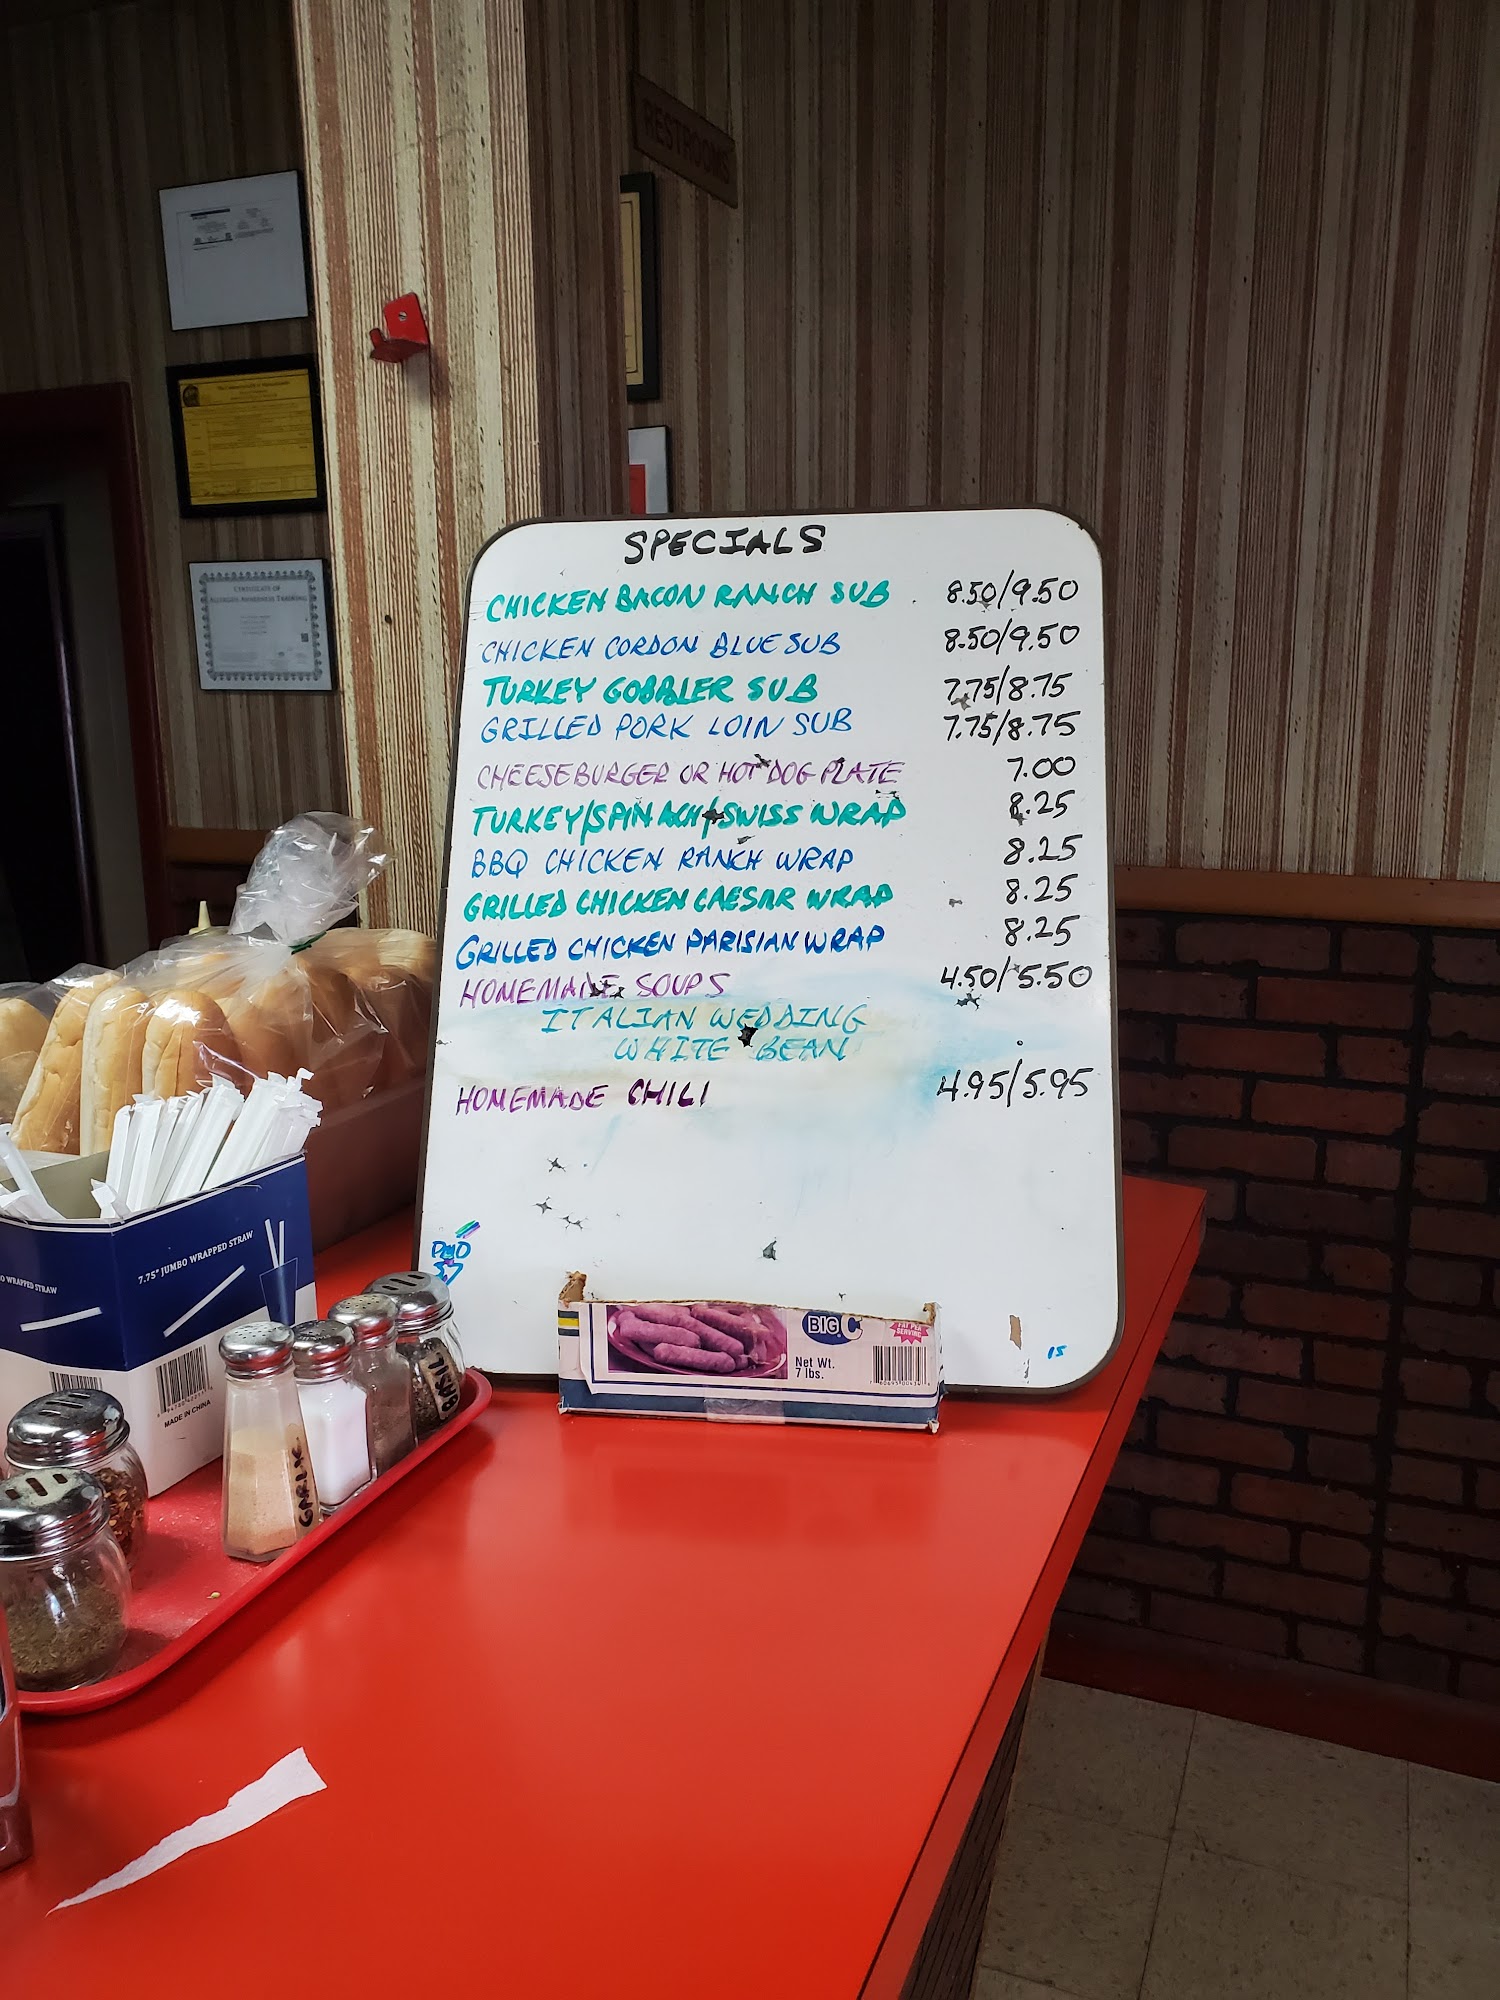 RESTROOMS
CERTIFICATE OF
ALLERGEN AWARENESS TRAINING
SPECIALS
CHICKEN BACON RANCH SUB 8.50/9.50
CHICKEN CORDON BLUE SUB 8.50/9.50
TURKEY GOBBLER SUB 7.75/8.75
GRILLED PORK LOIN SUB 7.75/8.75
CHEESEBURGER OR HOT DOG PLATE 7.00
TURKEY/SPINACH/SWISS WRAP 8.25
BBQ CHICKEN RANCH WRAP 8.25
GRILLED CHICKEN CAESAR WRAP 8.25
GRILLED CHICKEN PARISIAN WRAP 8.25
HOMEMADE SOUPS 4.50/5.50
ITALIAN WEDDING
WHITE BEAN
HOMEMADE CHILI 4.95/5.95
15
BIG C
FAT PER
SERVING
Net Wt.
7 lbs.
7.75" JUMBO WRAPPED STRAW
WRAPPED STRAW
MADE IN CHINA
GARLIC
BASIL